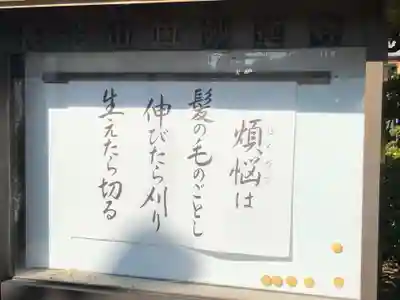 煩悩は
髪の毛のごとし
伸びたら刈り
生えたら切る